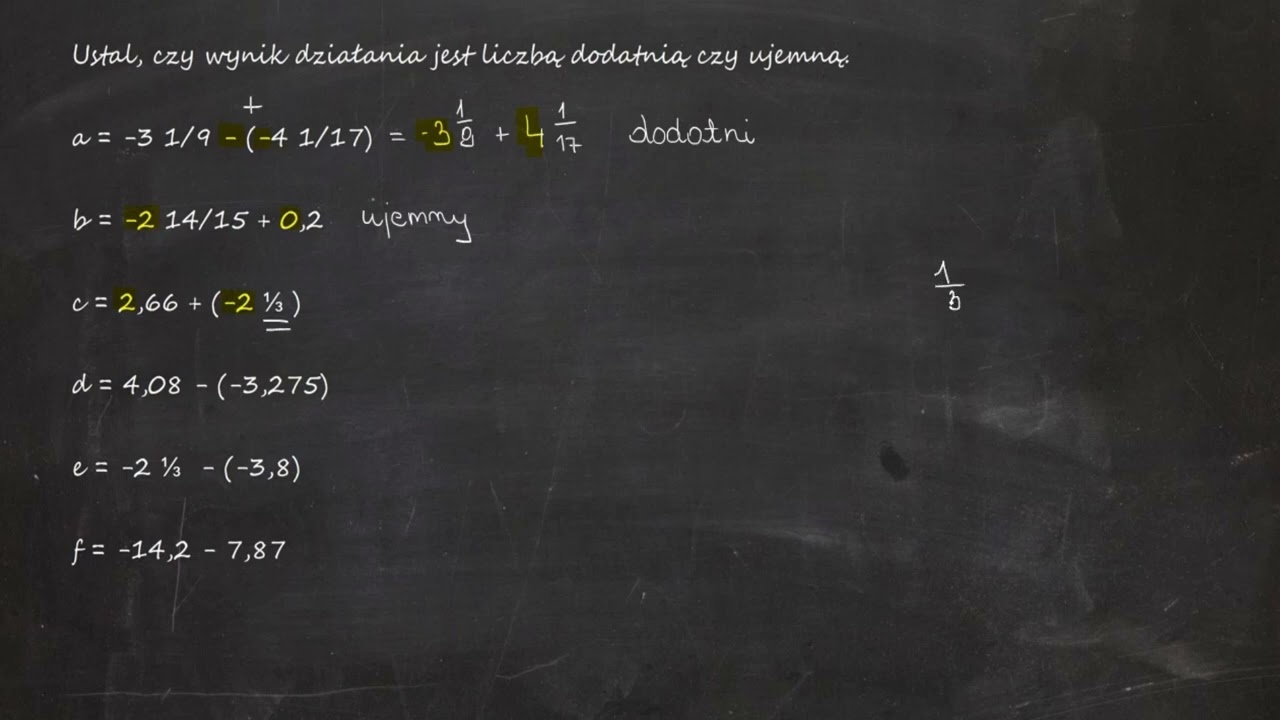 Ustal, czy wynik działania jest liczbą dodatnią czy ujemną.
+
a = -3 1/9 - (-4 1/17) = -3 1/9 + 4 1/17 dodatni
b = -2 14/15 + 0,2 ujemny
c = 2,66 + (-2 ⅓)
1/3
d = 4,08 - (-3,275)
e = -2 ⅓ - (-3,8)
f = -14,2 - 7,87